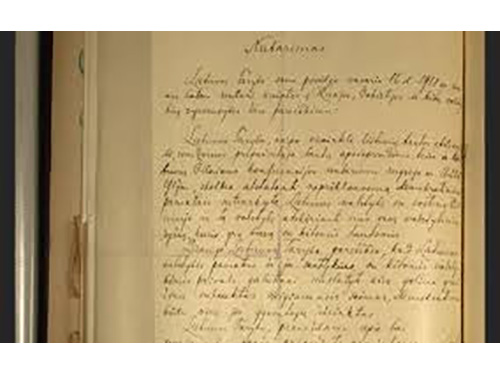 Nutarimas
Lietuvos Taryba savo posėdyje vasario 16 d. 1918 m. vie-
nu balsu nutarė kreiptis į Rusijos, Vokietijos ir kitų vals-
tybių vyriausybes šiuo pareiškimu:
Lietuvos Taryba, kaipo vienintelė lietuvių tautos
pripažintąja tautų apsisprendimo teise ir
Vilniaus konferencijos nutarimu rugsėjo m. 18-23 d.
skelbia atstatanti nepriklausomą demokratiniais
pamatais sutvarkytą Lietuvos valstybę su sostine
ir tą valstybę atskirianti nuo visų valstybinių
ryšių, kurie yra buvę su kitomis tautomis.
Drauge Lietuvos Taryba pareiškia, kad Lietuvos
valstybės pamatus ir jos santykius su kitomis valsty-
bėmis privalo galutinai nustatyti kiek galima
sušauktas steigiamasis seimas, demokratiniu
būdu visų jos gyventojų išrinktas.
Lietuvos Taryba, pranešdama apie tai